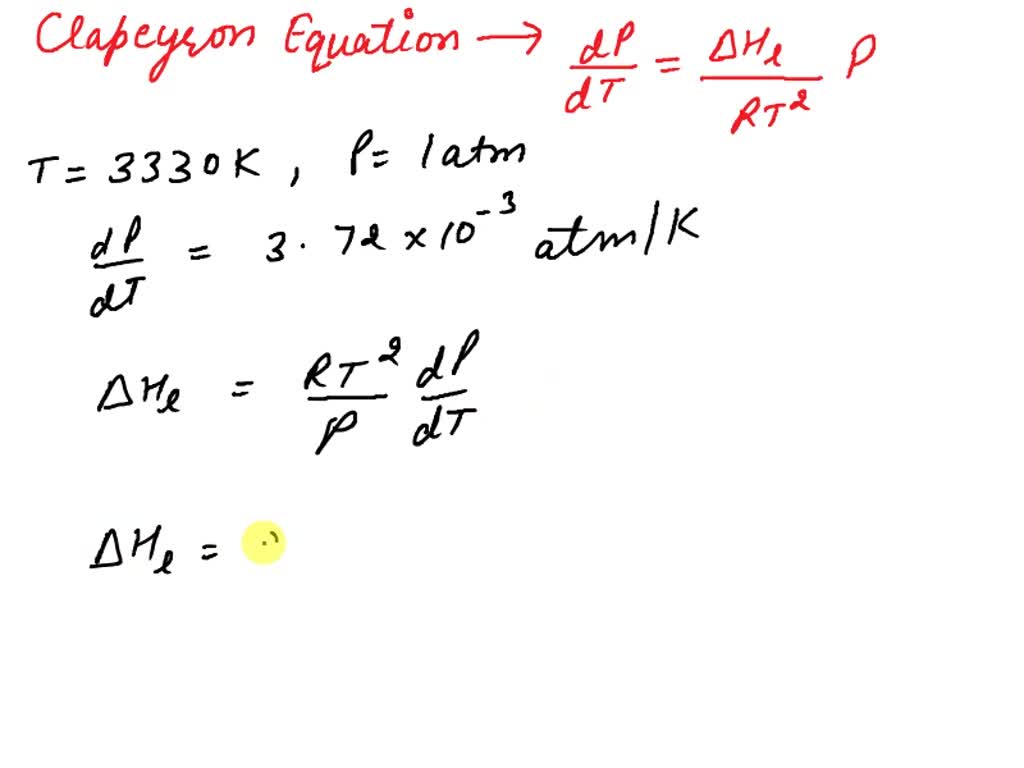 Clapeyron Equation → dP/dT = ΔHl/RT² P
T = 3330K , P = 1 atm
dP/dT = 3.72 × 10⁻³ atm/K
ΔHl = RT²/P dP/dT
ΔHl =